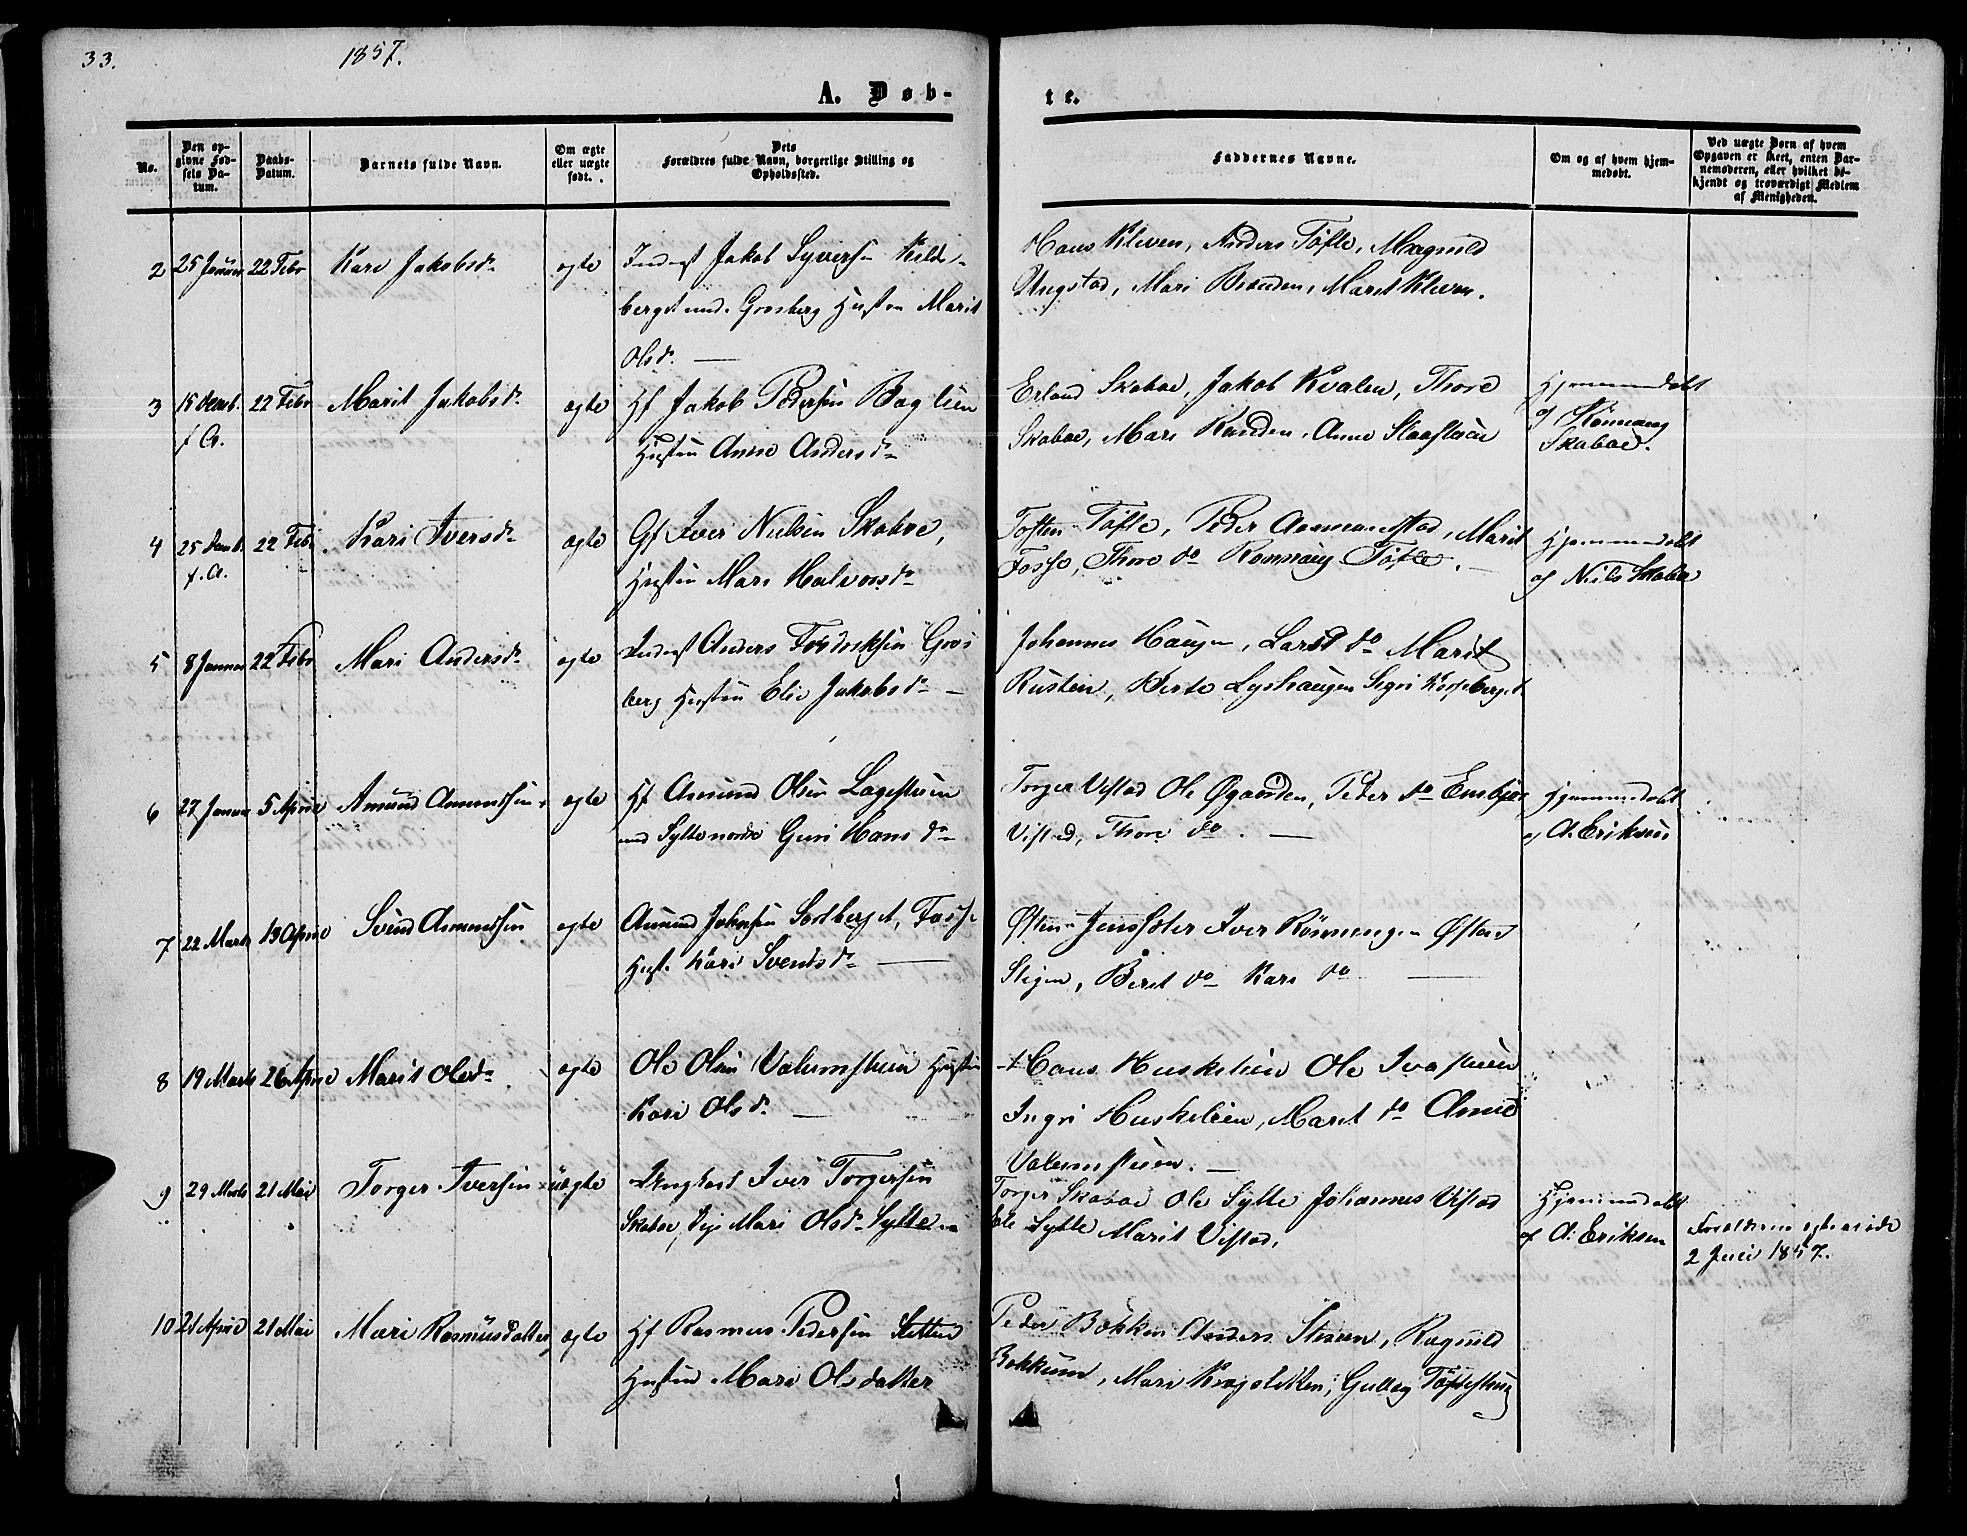 33.
1857.
A. Døb-
te.
No.
Den op-
givne Fød-
sels Da-
tum.
Daabs-
Datum.
Barnets fulde Navn.
Om ægte
eller uægte
født.
Dets
Forældres fulde Navn, borgerlige Stilling og
Opholdssted.
Faddernes Navne.
Om og af hvem hjem-
medøbt.
Ved uægte Børn af hvem
Opgaven er skeet, enten Bar-
nemoderen, eller hvilket be-
kjendt og troværdigt Medlem
af Menigheden.
2 25 Januar 22 Febr Kari Jakobsdr ægte Inderst Jakob Syversen
berget und. Grosberg Hustru Marit
Olsdr.
Hans Kleven, Anders Tofte, Magnild
Ungstad, Mari Brænden, Marit Kleven.
3 15 Decmb. 22 Febr Marit Jakobsdr ægte Hf Jakob Pedersen Baglien
f A.
Hustru Anne Andersdr
Erland Skaboe, Jakob Kvalen, Thore
Skaboe, Mari Randen, Anne
Hjemmedøbt
af Rønnaug
Skaboe.
4 25 Decmb. 22 Febr Kari Iversdr ægte Gf Iver Nielsen Skaboe,
f. A.
Hustru Mari Halvorsdr
Tosten Tofte, Peder Aamundstad, Marit
Fosse, Thore do Rønnaug Tofte.
Hjemmedøbt
af Niels Skaboe
5 8 Januar 22 Febr Mari Andersdr ægte Inderst Anders Fredriksen Gros
berg Hustru Elie Jakobsdr
Johannes Haugen, Lars do Marit
Rusten, Berte Lyshaugen Sigri
6 27 Januar 5 April Amund Amundsen ægte Hf Amund Olsen Lagestuen
und Sylte nordre Guri Hansdr
Torger Vistad Ole Øgaarden, Peder do Embjør
Vistad, Thore do.
Hjemmedøbt
af A. Eriksen
7 22 Marts 13 April Svend Amundsen ægte Amund Johnsen Sortberget, Fosse
Hust. Kari Svendsdr
Østen Jenssæter Iver Rønningen Østen
Stigen, Berit do Kari do
8 19 Marts 26 April Marit Olsdr ægte Ole Olsen Valumstuen Hustru
Kari Olsdr.
Hans Huskelien Ole
Ingri Huskelien, Marit do Amund
Valumstuen.
9 29 Marts 21 Mai Torger Iversen uægte Ungkarl Iver Torgersen
Skaboe, Pige Mari Olsdr Sylte
Torger Skaboe Ole Sylte Johannes Vistad
Sylte Marit Vistad.
Hjemmedøbt
af A. Eriksen
Forældrene ægteviede
2 Juli 1857.
10 21 April 21 Mai Mari Rasmusdatter ægte Hf Rasmus Pedersen Sletten
Hustru Mari Olsdatter
Peder Bakken Anders Steien, Ragnild
Bakkum, Mari Kragsletten, Gullog